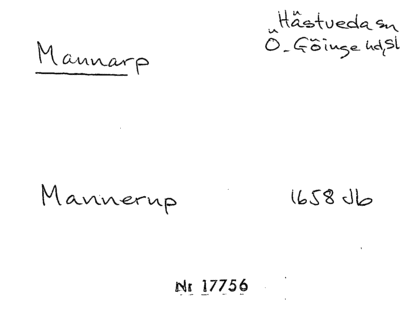 Hästveda sn
Mannarp
Ö. Göinge hd, Sk
Mannerup 1658 Jb
Nr 17756